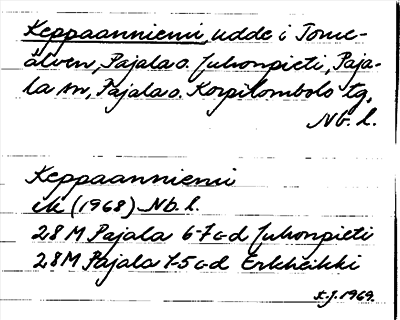 Keppaanniemi, udde i Torne-
älven, Pajala o. Juhonpieti, Paja-
la sn, Pajala o. Korpilombolo tg,
Nb. l.
Keppaanniemi
ek (1968) Nb. l.
28 M Pajala 6-7 c-d Juhonpieti
28 M Pajala 7-5 c-d Erkheikki
1969.